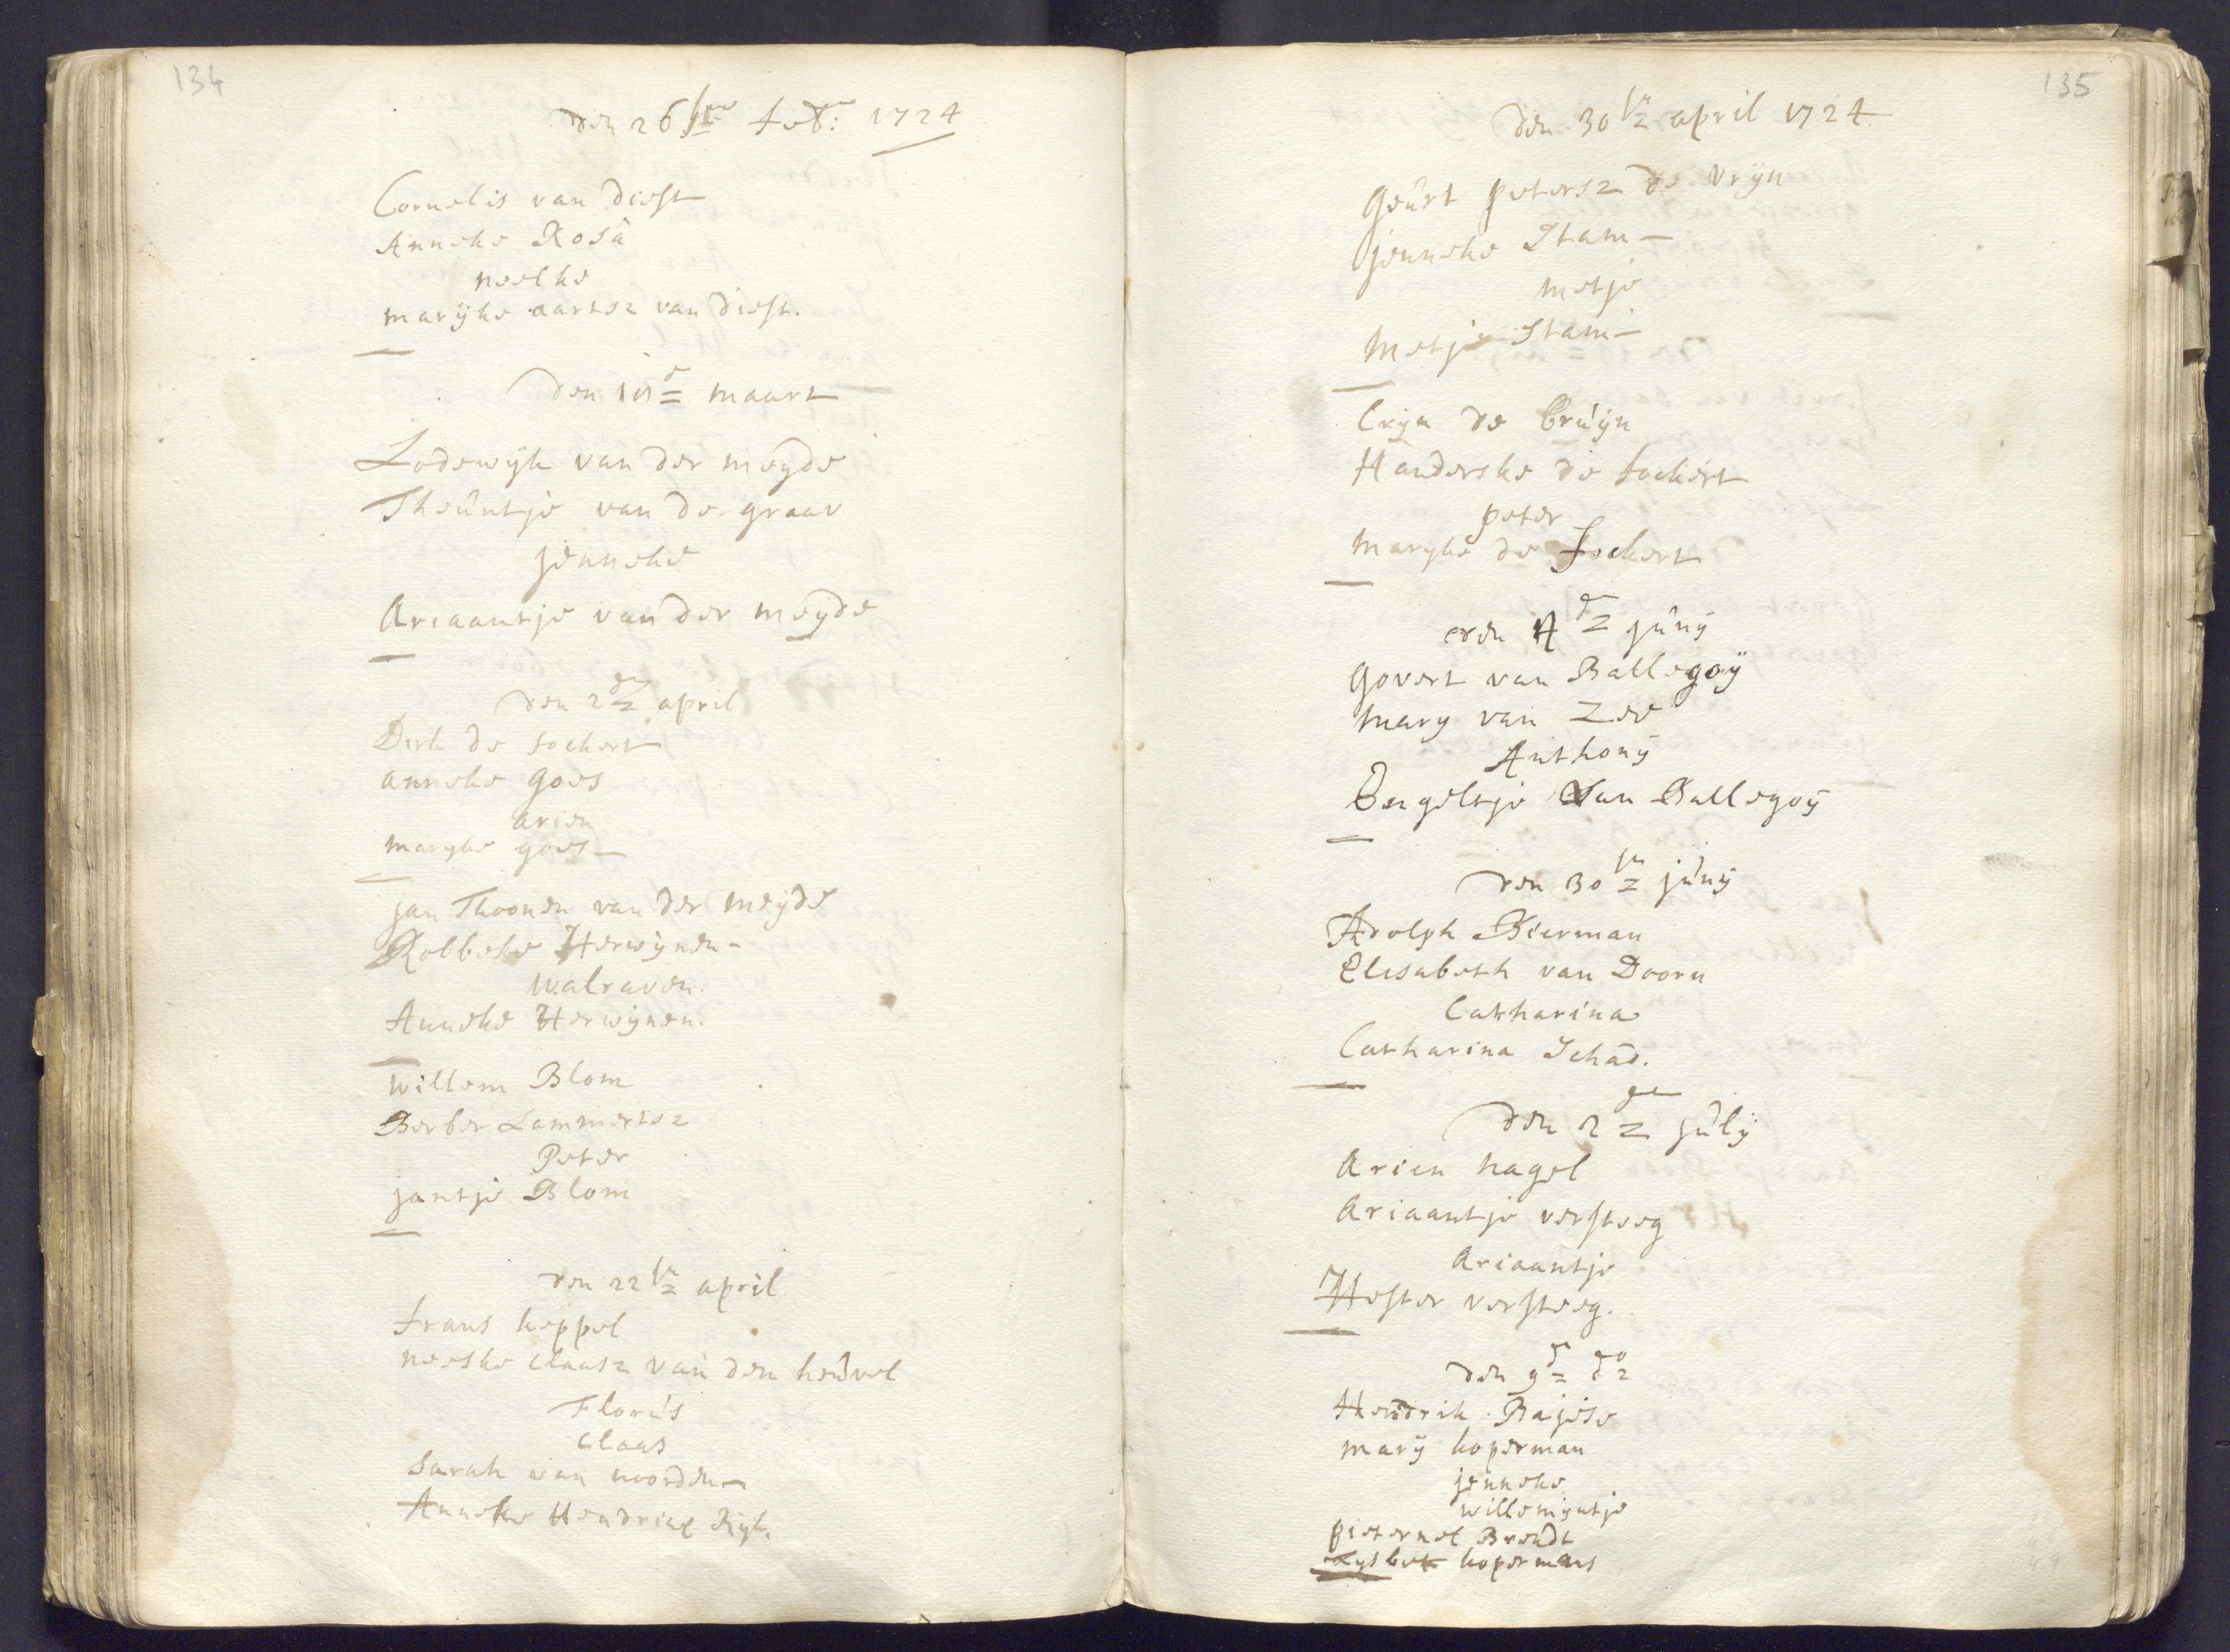 134
den 26ste feb: 1724
Cornelis van diest
Anneke Rosa
neelke
marijke aartsz van diest.
den 19de maart
Lodewijk van der meyde
Theuntje van de graav
jenneke
Ariaantje van der meyde
den 2de april
Dirk de fockert
anneke goes
arien
maryke goes
jan Thoonen van der meyde
Robbeke Herwijnen
walraven.
Anneke Herwijnen.
willem Blom
Berber Lammertsz
Peter
jantje Blom
den 22ste april
frans keppel
neeske claasz van den heuvel
Florus
claas
Sarah van noorden
Anneke Hendricx Rijk.
135
den 30ste april 1724
geurt petersz de vrijn
jenneke Stam
metje
metje Stam
Crijn de bruijn
Handerske de fockert
peter
maryke de fockert
den 4de junij
govert van Ballegoij
mary van Zee
Anthonij
Engeltje Van Ballegoij
den 30ste junij
Adolph Bierman
Elisabeth van Doorn
Catharina
Catharina Schad.
den 2de julij
Arien nagel
Ariaantje versteeg
Ariaantje
Hester versteeg.
den 9de do
Hendrik Bajese
marij koperman
jenneke
willemijntje
pieternel Brendt
Lysbet kopermans